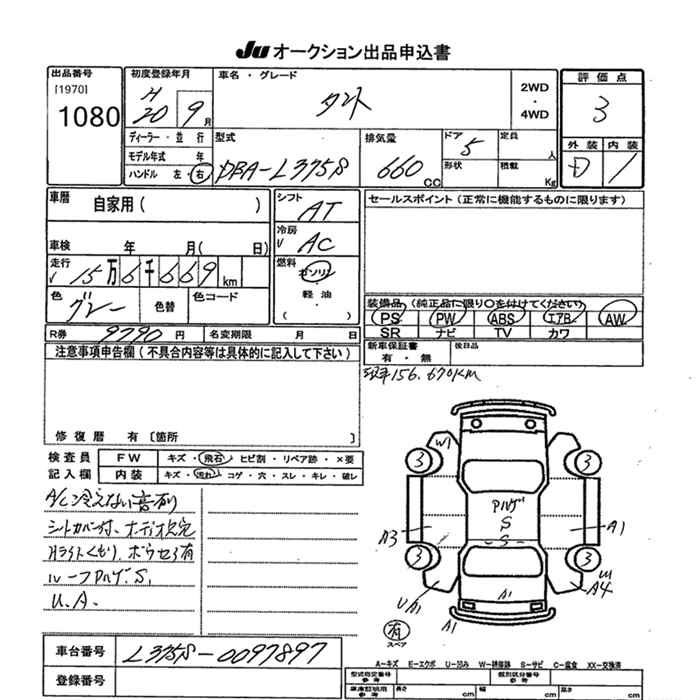 Ju オークション出品申込書
出品番号
[1970]
1080
初度登録年月
H20 9月
車名・グレード
タント
2WD
・
4WD
評価点
3
外装 内装
D 1
ディーラー・並行
モデル年式 年
ハンドル 左・右
型式
DBA-L375S
排気量
660 CC
ドア 5
形状
定員 人
積載 Kg
車歴
自家用( )
車検 年 月( 日)
走行
✓ 15万6千669km
色
グレー
色替
色コード
シフト
AT
冷房
✓ AC
燃料
ガソリン
・
軽油
( )
セールスポイント(正常に機能するものに限ります)
装備品(純正品に限り○を付けてください)
PS PW ABS エアB AW
SR ナビ TV カワ
R券 9790円
名変期限 月 日
新車保証書
有・無
後日品
現車156.670KM
注意事項申告欄(不具合内容等は具体的に記入して下さい)
修復歴 有〔箇所 〕
検査員
記入欄
FW キズ・飛石・ヒビ割・リペア跡・×要
内装 キズ・汚れ・コゲ・穴・スレ・キレ・破レ
A/C冷えない音有り
シートカバー付、オーディオ欠完
Hライトくもり、ボウセイ有
ルーフアルゲ.S,
U.A.
W1
3
3
アルゲ
S
S
A3
A1
3
3
UA1
A1
W
A4
A1
有
スペア
車台番号
L375S-0097897
登録番号
A-キズ E-エクボ U-凹み W-補修跡 S-サビ C-腐食 XX-交換済
型式指定番号
参考
類別区分番号
参考
車庫証明用
参考
長さ cm
幅 cm
高さ cm